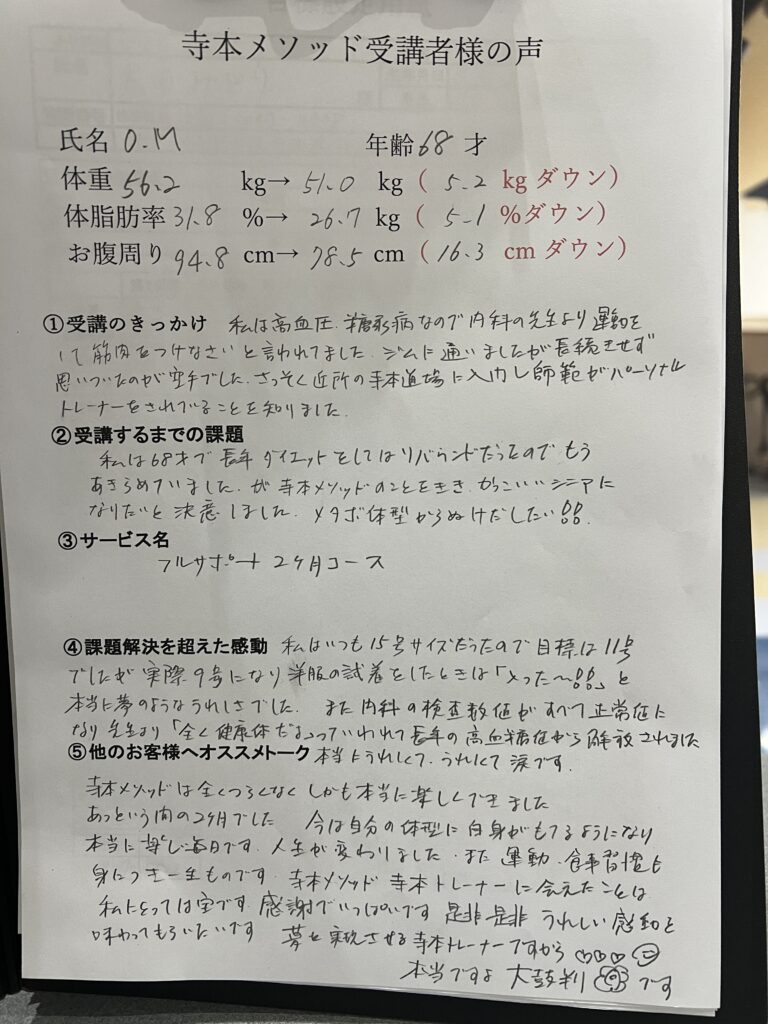 寺本メソッド受講者様の声
氏名 O.M 年齢 68 才
体重 56.2 kg→ 51.0 kg ( 5.2 kg ダウン)
体脂肪率 31.8 %→ 26.7 kg ( 5.1 %ダウン)
お腹周り 94.8 cm→ 78.5 cm ( 16.3 cm ダウン)
①受講のきっかけ 私は高血圧、糖尿病なので内科の先生より運動を
して筋肉をつけなさいと言われてました。ジムに通いましたが長続きせず
思いついたのが空手でした。さっそく近所の寺本道場に入門し師範がパーソナル
トレーナーをされていることを知りました。
②受講するまでの課題
私は68才で長年ダイエットをしてはリバウンドだったのでもう
あきらめていました。が寺本メソッドのことをきき かっこいいシニアに
なりたいと決意しました。メタボ体型からぬけだしたい!!
③サービス名
フルサポート 2ヶ月コース
④課題解決を超えた感動 私はいつも15号サイズだったので目標は11号
でしたが実際9号になり洋服の試着をしたときは「やった〜!!」と
本当に夢のようなうれしさでした。また内科の検査数値がすべて正常値に
なり先生より「全く健康体だね」っていわれて長年の高血糖値から解放されました
⑤他のお客様へオススメトーク 本当にうれしくて、うれしくて涙です。
寺本メソッドは全くつらくなくしかも本当に楽しくできました
あっという間の2ヶ月でした 今は自分の体型に自身がもてるようになり
本当に楽しい毎日です。人生が変わりました。また運動、食事習慣も
身につき一生ものです。寺本メソッド 寺本トレーナーに会えたことは
私にとっては宝です。感謝でいっぱいです 是非是非 うれしい感動を
味わってもらいたいです 夢を実現させる寺本トレーナーですから♡♡♡
本当ですよ 太鼓判 です